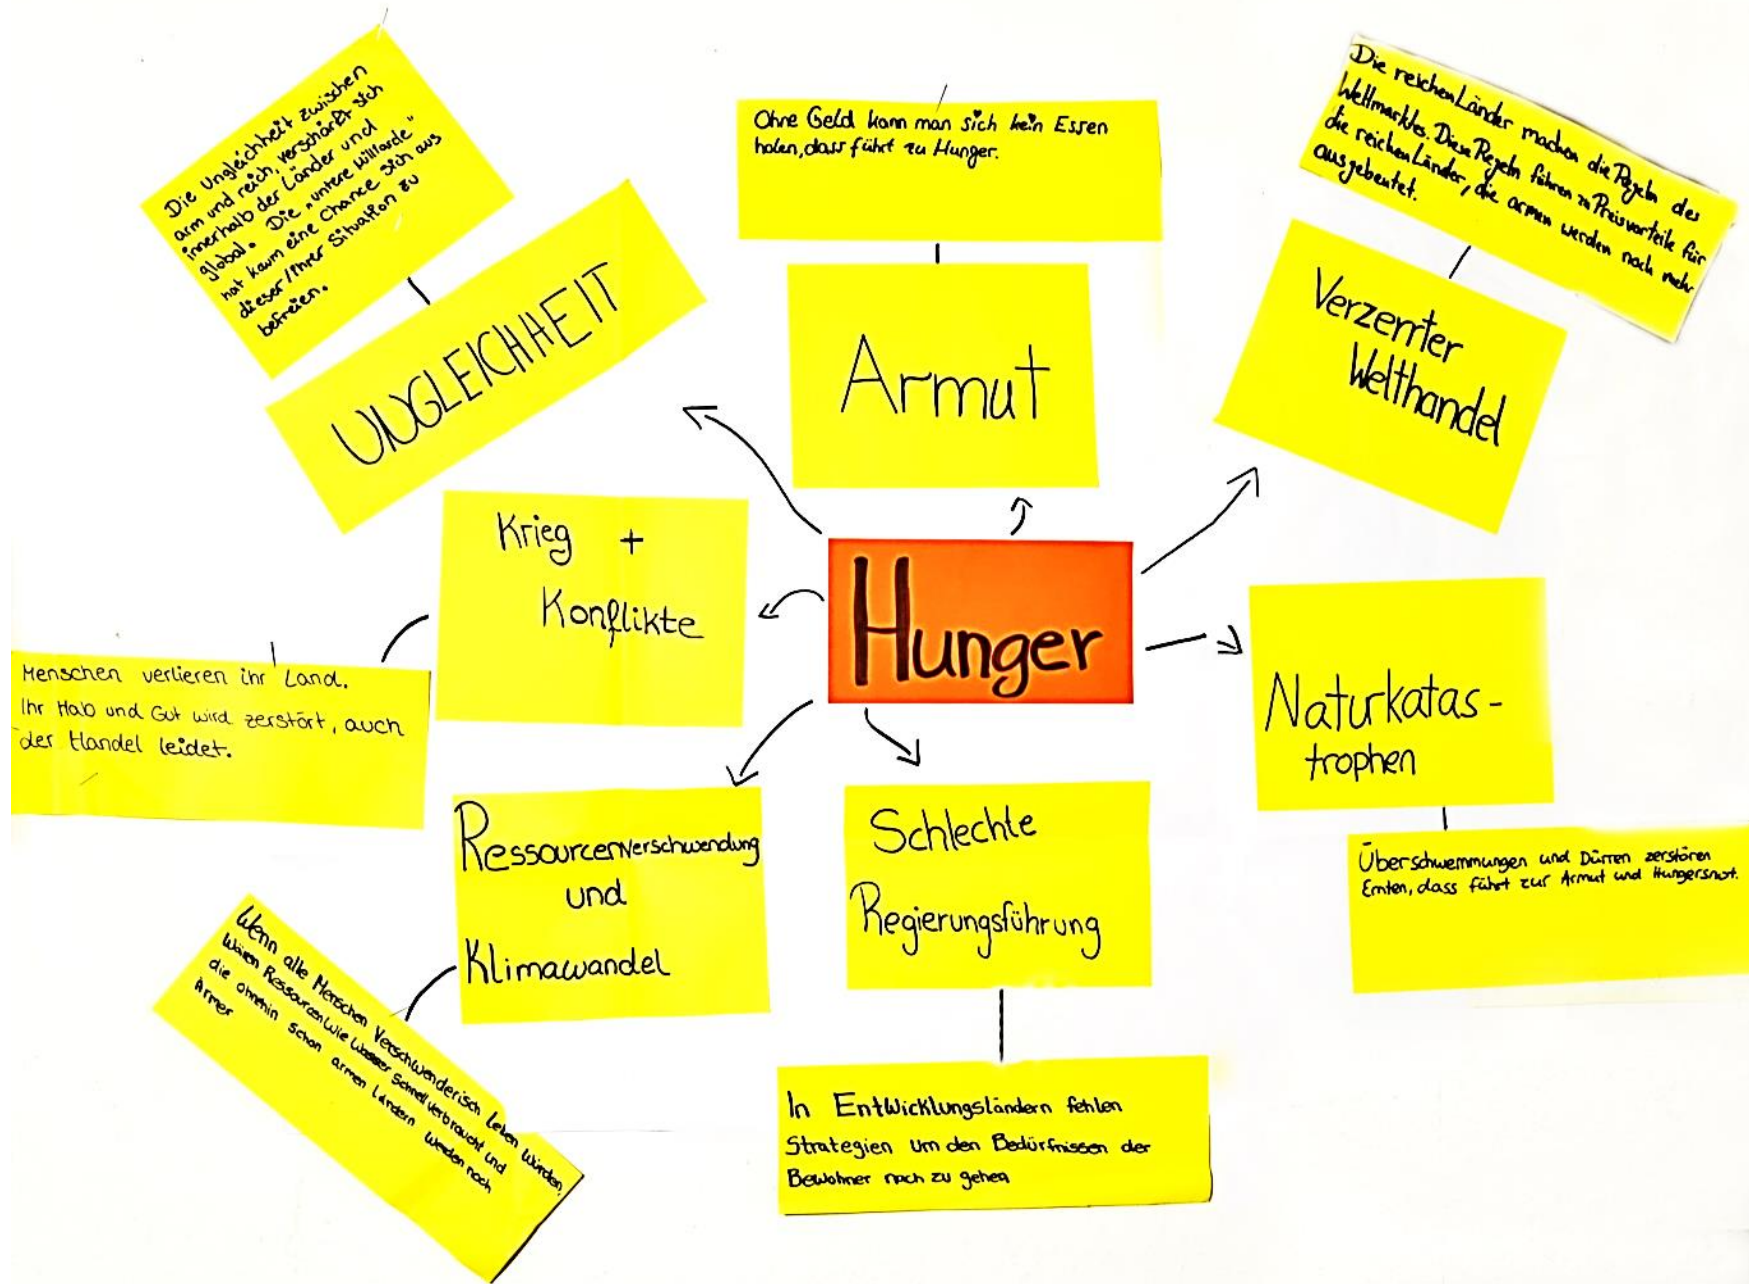 Die Ungleichheit zwischen
arm und reich, verschärft sich
innerhalb der Länder und
global. Die „untere Milliarde"
hat kaum eine Chance sich aus
dieser/ihrer Situation zu
befreien.
UNGLEICHHEIT
Ohne Geld kann man sich kein Essen
holen, dass führt zu Hunger.
Armut
Die reichen Länder machen die Regeln des
Weltmarktes. Diese Regeln führen zu Preisvorteile für
die reichen Länder, die armen werden noch mehr
ausgebeutet.
Verzerrter
Welthandel
Krieg +
Konflikte
Menschen verlieren ihr Land.
Ihr Hab und Gut wird zerstört, auch
der Handel leidet.
Hunger
Naturkatas-
trophen
Überschwemmungen und Dürren zerstören
Ernten, dass führt zur Armut und Hungersnot.
Ressourcenverschwendung
und
Klimawandel
Wenn alle Menschen Verschwenderisch Leben würden,
wären Ressourcen Wie Wasser Schnell verbraucht und
die ohnehin schon armen Ländern werden noch
Ärmer
Schlechte
Regierungsführung
In Entwicklungsländern fehlen
Strategien um den Bedürfnissen der
Bewohner nach zu gehen